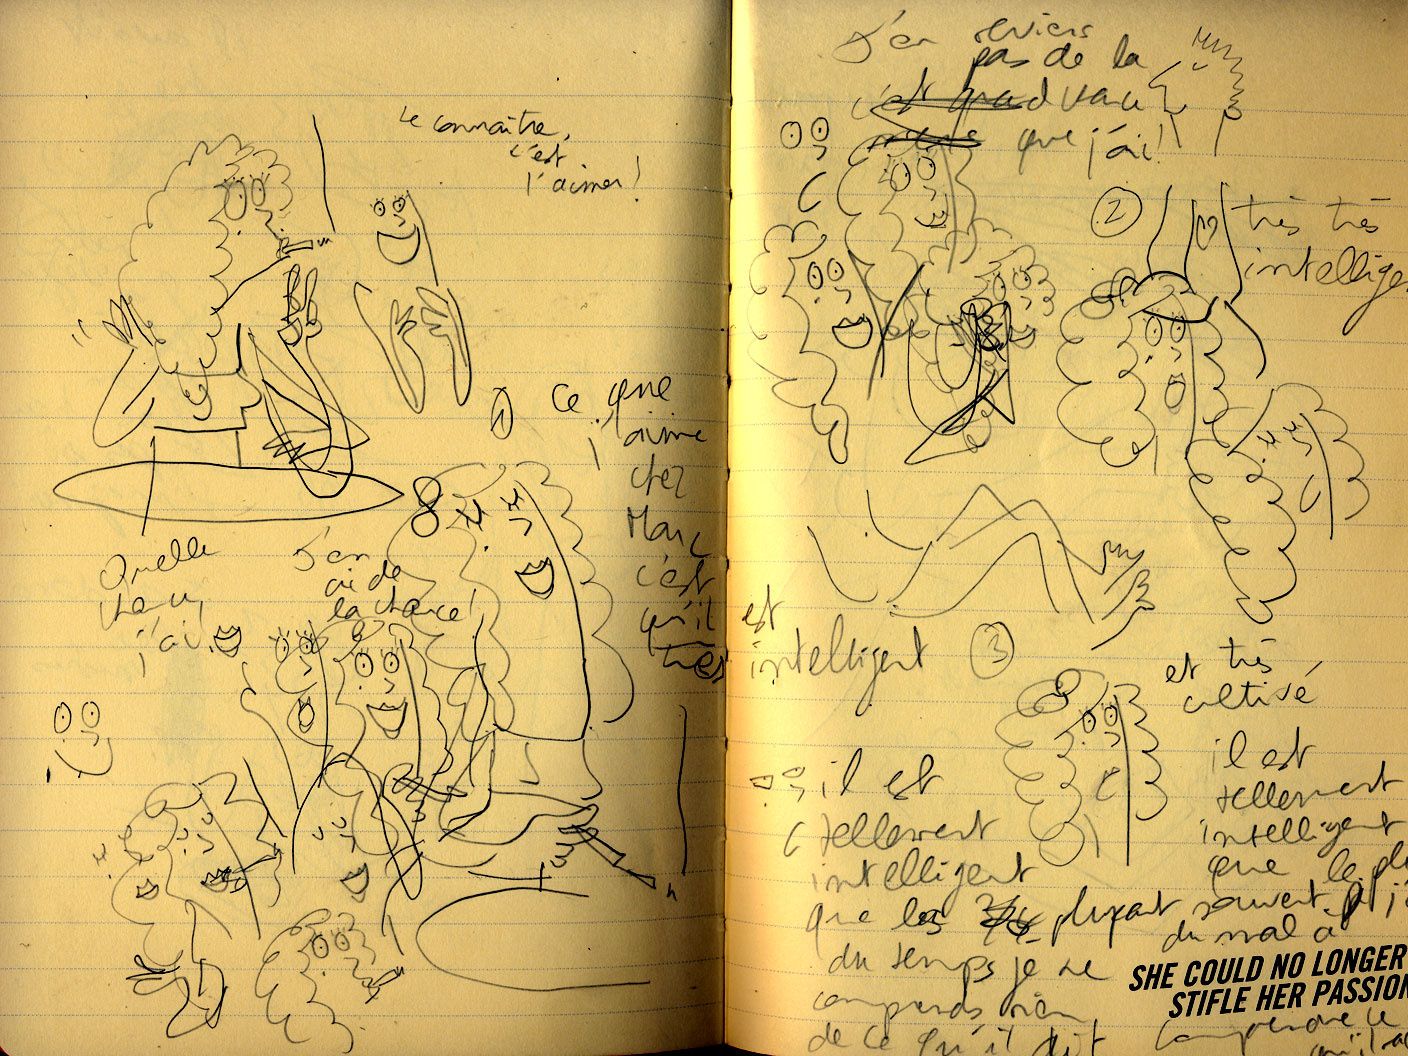 le connaître,
c'est
l'aimer !
①
ce que
j'aime
chez
Marc
c'est
qu'il
très
Quelle
j'ai
J'en
ai de
la chance !
J'en reviens
pas de la
c'est
que j'ai !
②
très très
intellige
est
intelligent
③
et très
cultivé
il est
tellement
intelligent
que les plupart
du temps je ne
comprends rien
de ce qu'il dit
il est
tellement
intelligent
que le plu
souvent j'
du mal à
comprendre ce
qu'il
SHE COULD NO LONGER
STIFLE HER PASSION